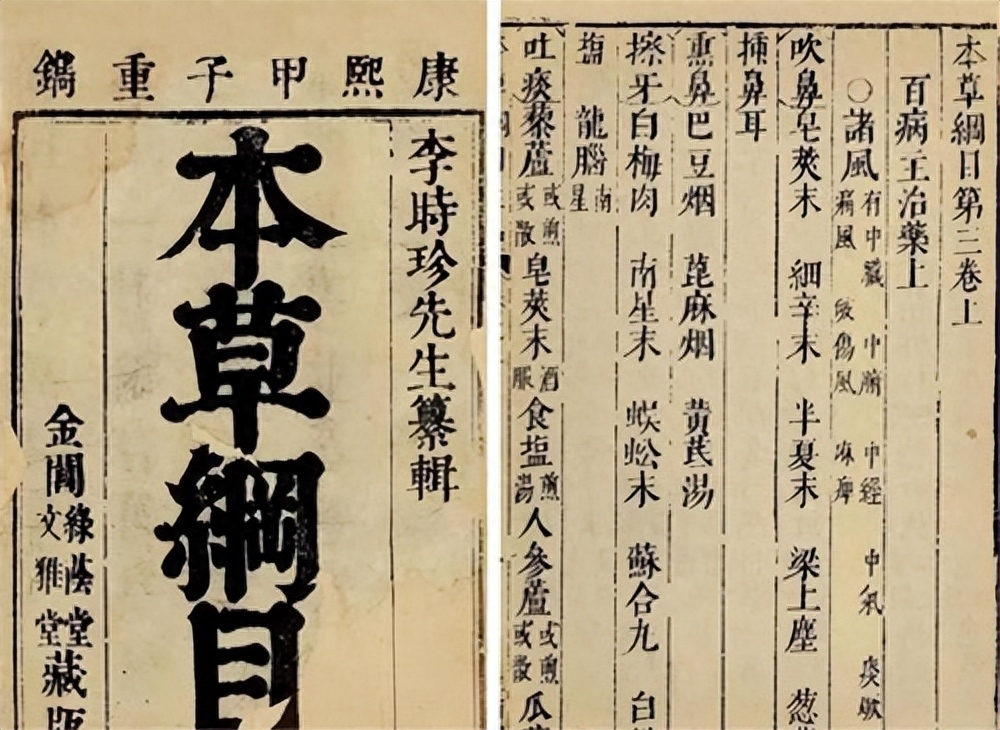 康熙甲子重鐫
李時珍先生纂輯
本草綱目
金閶
綠蔭堂
文雅堂
藏版
本草綱目第三卷上
百病主治藥上
○諸風
有中臟 中腑 中經 中氣 痰厥
痛風 破傷風 麻痺
吹鼻皂莢末 細辛末 半夏末 梁上塵 葱
揷鼻耳
熏鼻巴豆烟 蓖麻烟 黄芪湯
擦牙白梅肉 南星末 蜈蚣末 蘇合丸 白
塩 龍腦南星
吐痰藜蘆或煎或散皂莢末酒服食塩煎湯人參蘆或煎或散瓜